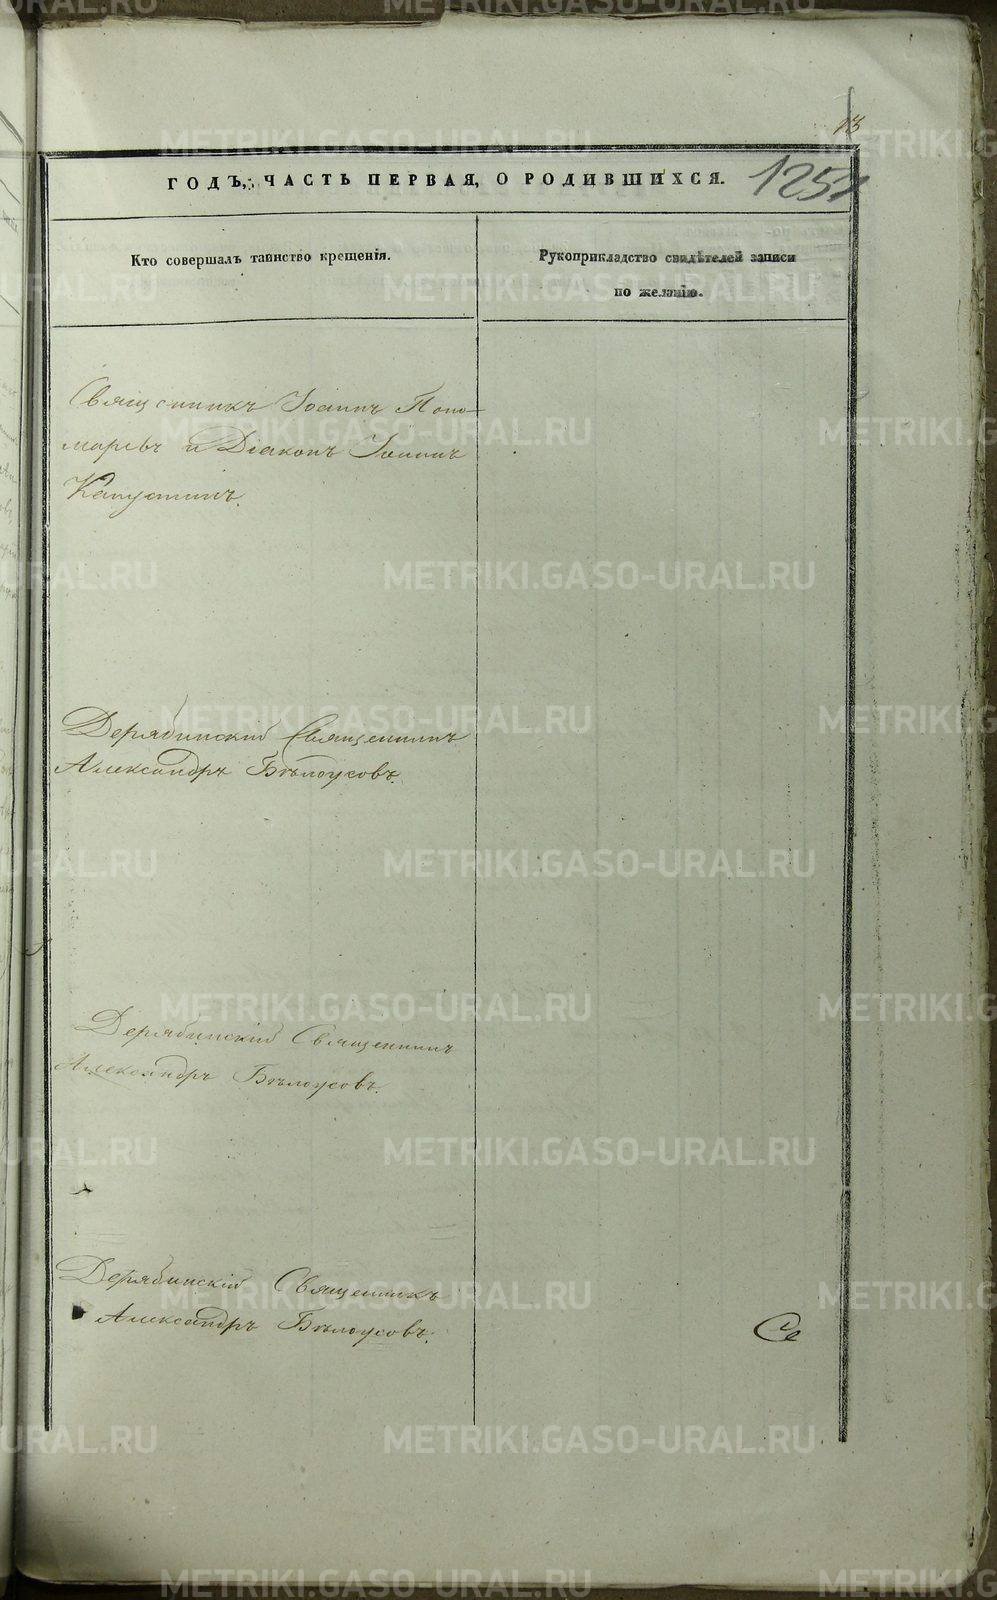 13
ГОДЪ, ЧАСТЬ ПЕРВАЯ, О РОДИВШИХСЯ.
125
Кто совершалъ таинство крещенія.
Рукоприкладство свидѣтелей записи
по желанію.
Священникъ Іоаннъ Поно-
маревъ и Діаконъ Іоаннъ
Капустинъ.
Дерябинскій Священникъ
Александръ Бѣлоусовъ.
Дерябинскій Священникъ
Александръ Бѣлоусовъ.
Дерябинскій Священникъ
Александръ Бѣлоусовъ.
Се
METRIKI.GASO-URAL.RU